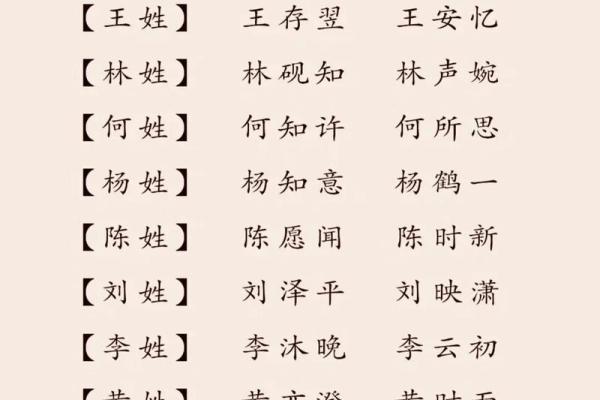 【王姓】 王存翌 王安忆
【林姓】 林砚知 林声婉
【何姓】 何知许 何所思
【杨姓】 杨知意 杨鹤一
【陈姓】 陈愿闻 陈时新
【刘姓】 刘泽平 刘映潇
【李姓】 李沐晚 李云初